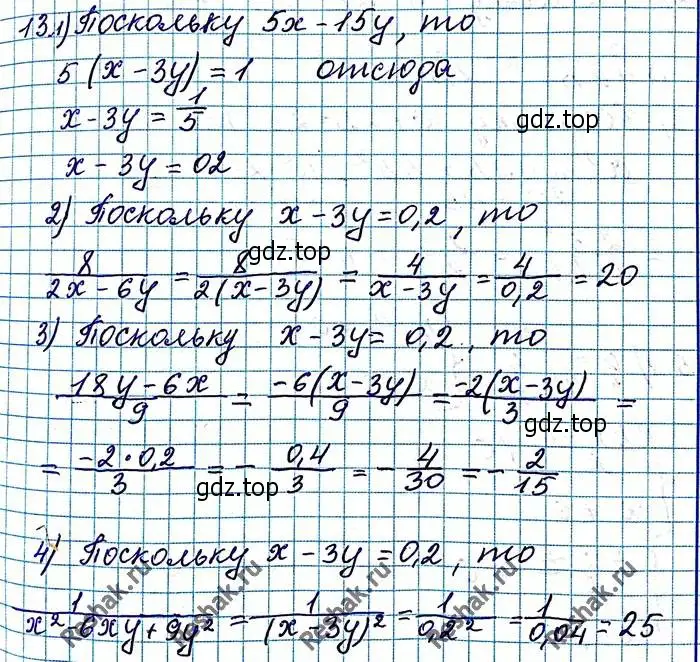 13.1) Поскольку 5x - 15y, то
5 (x - 3y) = 1 отсюда
x - 3y = 1/5
gdz.top
x - 3y = 02
2) Поскольку x - 3y = 0,2, то
gdz.top
8/(2x - 6y) = 8/(2(x - 3y)) = 4/(x - 3y) = 4/0,2 = 20
3) Поскольку x - 3y = 0,2, то
(18y - 6x)/9 = (-6(x - 3y))/9 = (-2(x - 3y))/3 =
gdz.top
= (-2 · 0,2)/3 = - 0,4/3 = - 4/30 = - 2/15
gdz.top
4) Поскольку x - 3y = 0,2, то
1/(x² - 6xy + 9y²) = 1/(x - 3y)² = 1/0,2² = 1/0,04 = 25
Reshak.ru
Reshak.ru
Reshak.ru
Reshak.ru